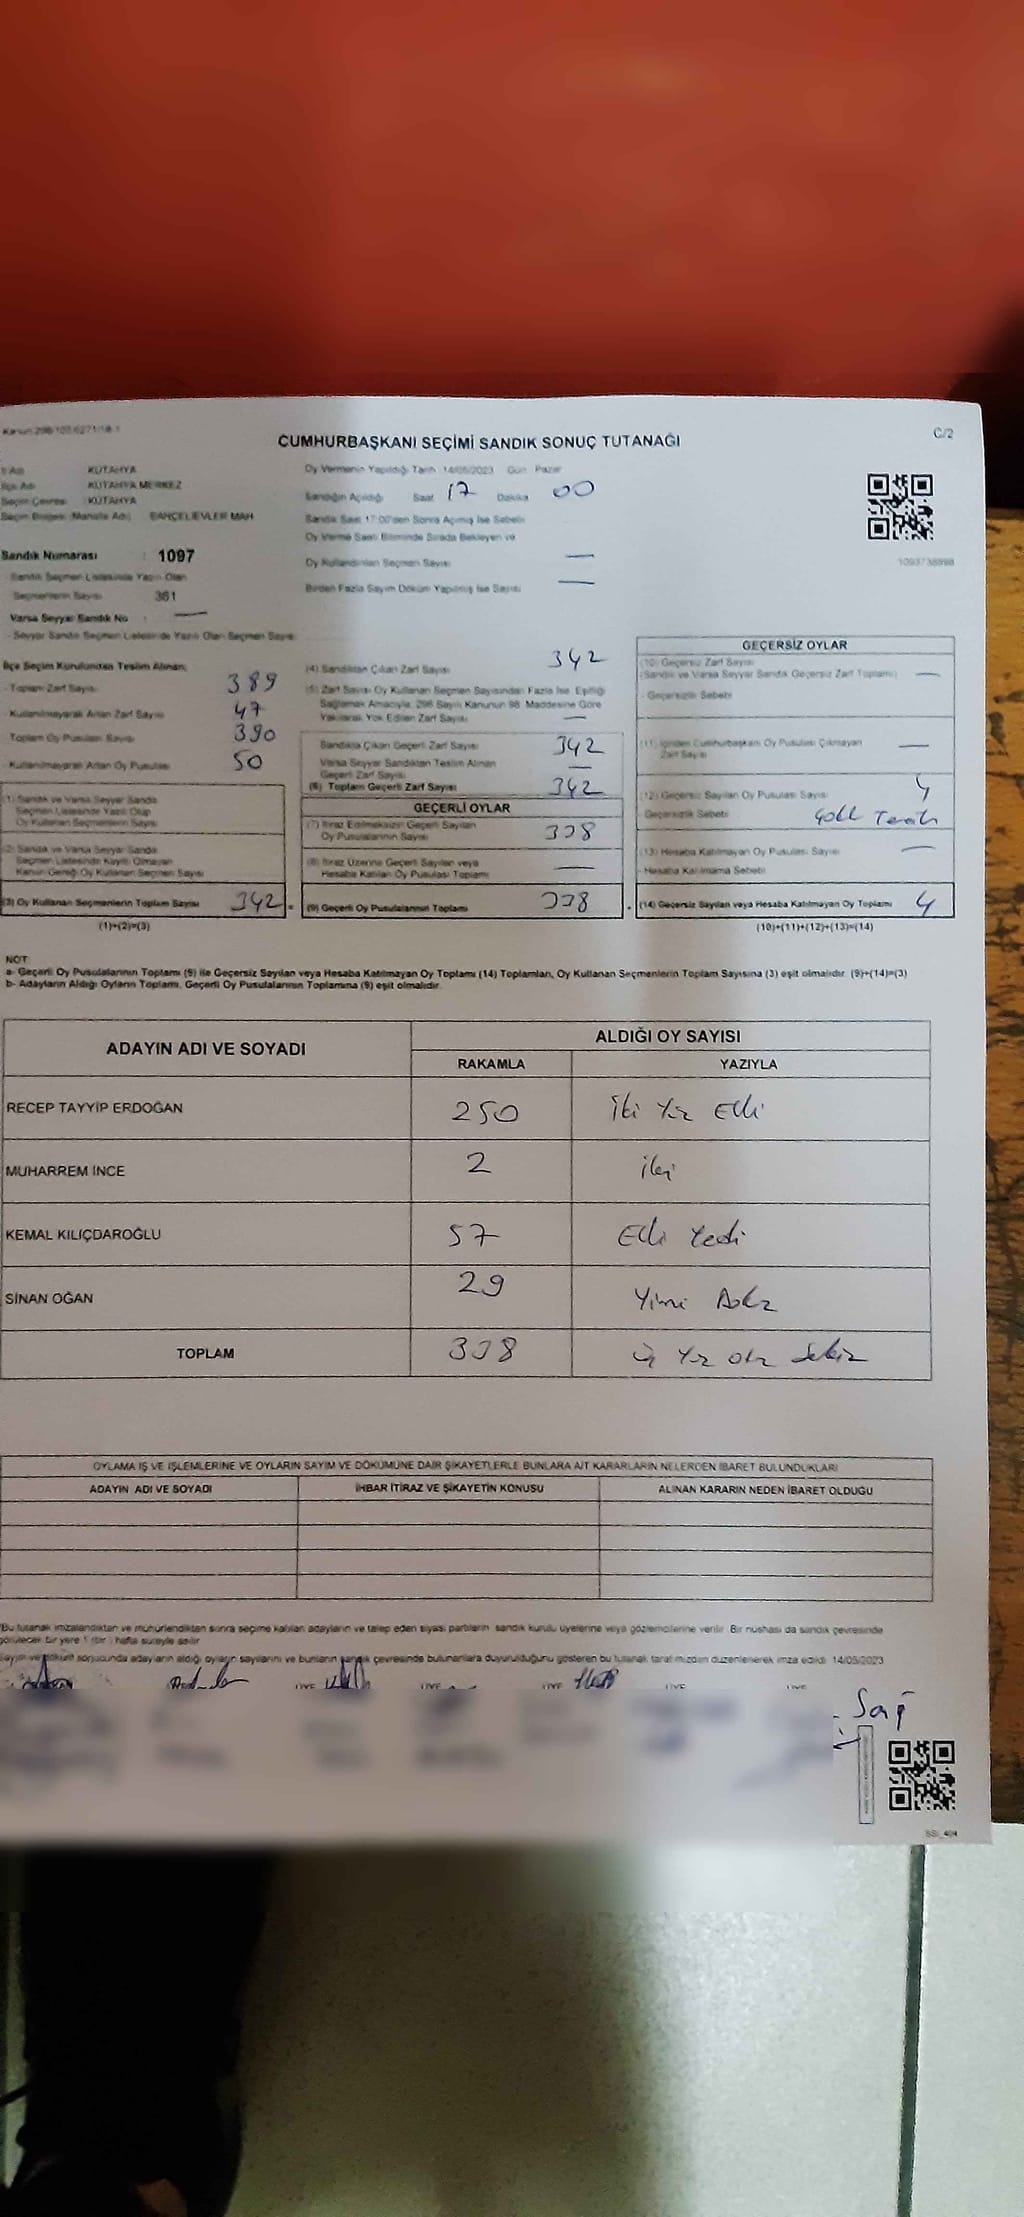 Kanun: 298/103.6271/18-1
C/2
CUMHURBAŞKANI SEÇİMİ SANDIK SONUÇ TUTANAĞI
İl Adı KÜTAHYA
İlçe Adı KÜTAHYA MERKEZ
Seçim Çevresi KÜTAHYA
Seçim Bölgesi (Mahalle Adı) BAHÇELİEVLER MAH
Sandık Numarası : 1097
Sandık Seçmen Listesinde Yazılı Olan
Seçmenlerin Sayısı 361
Varsa Seyyar Sandık No : —
- Seyyar Sandık Seçmen Listesinde Yazılı Olan Seçmen Sayısı
Oy Vermenin Yapıldığı Tarih 14/05/2023 Gün Pazar
Sandığın Açıldığı Saat 17 Dakika 00
Sandık Saat 17:00'den Sonra Açılmış İse Sebebi
Oy Verme Saati Bitiminde Sırada Bekleyen ve
Oy Kullandırılan Seçmen Sayısı —
Birden Fazla Sayım Döküm Yapılmış İse Sayısı —
1093738998
İlçe Seçim Kurulundan Teslim Alınan;
- Toplam Zarf Sayısı 389
- Kullanılmayarak Artan Zarf Sayısı 47
Toplam Oy Pusulası Sayısı 390
- Kullanılmayarak Artan Oy Pusulası 50
(1) Sandık ve Varsa Seyyar Sandık
Seçmen Listesinde Yazılı Olup
Oy Kullanan Seçmenlerin Sayısı
(2) Sandık ve Varsa Seyyar Sandık
Seçmen Listesinde Kayıtlı Olmayan
Kanun Gereği Oy Kullanan Seçmen Sayısı
(3) Oy Kullanan Seçmenlerin Toplam Sayısı 342
(1)+(2)=(3)
(4) Sandıktan Çıkan Zarf Sayısı 342
(5) Zarf Sayısı Oy Kullanan Seçmen Sayısından Fazla İse, Eşitliği
Sağlamak Amacıyla, 298 Sayılı Kanunun 98. Maddesine Göre
Yakılarak Yok Edilen Zarf Sayısı —
Sandıkta Çıkan Geçerli Zarf Sayısı 342
Varsa Seyyar Sandıktan Teslim Alınan
Geçerli Zarf Sayısı —
(6) Toplam Geçerli Zarf Sayısı 342
GEÇERLİ OYLAR
(7) İtiraz Edilmeksizin Geçerli Sayılan
Oy Pusulalarının Sayısı 338
(8) İtiraz Üzerine Geçerli Sayılan veya
Hesaba Katılan Oy Pusulası Toplamı —
(9) Geçerli Oy Pusulalarının Toplamı 338
GEÇERSİZ OYLAR
(10) Geçersiz Zarf Sayısı
(Sandık ve Varsa Seyyar Sandık Geçersiz Zarf Toplamı) —
- Geçersizlik Sebebi
(11) İçinden Cumhurbaşkanı Oy Pusulası Çıkmayan
Zarf Sayısı —
(12) Geçersiz Sayılan Oy Pusulası Sayısı 4
- Geçersizlik Sebebi
(13) Hesaba Katılmayan Oy Pusulası Sayısı —
- Hesaba Katılmama Sebebi
(14) Geçersiz Sayılan veya Hesaba Katılmayan Oy Toplamı 4
(10)+(11)+(12)+(13)=(14)
NOT:
a- Geçerli Oy Pusulalarının Toplamı (9) ile Geçersiz Sayılan veya Hesaba Katılmayan Oy Toplamı (14) Toplamları, Oy Kullanan Seçmenlerin Toplam Sayısına (3) eşit olmalıdır. (9)+(14)=(3)
b- Adayların Aldığı Oyların Toplamı, Geçerli Oy Pusulalarının Toplamına (9) eşit olmalıdır.
ADAYIN ADI VE SOYADI ALDIĞI OY SAYISI
RAKAMLA YAZIYLA
RECEP TAYYİP ERDOĞAN 250 İki Yüz Elli
MUHARREM İNCE 2 iki
KEMAL KILIÇDAROĞLU 57 Elli Yedi
SİNAN OĞAN 29 Yirmi Dokuz
TOPLAM 338 Üç Yüz Otuz Sekiz
OYLAMA İŞ VE İŞLEMLERİNE VE OYLARIN SAYIM VE DÖKÜMÜNE DAİR ŞİKAYETLERLE BUNLARA AİT KARARLARIN NELERDEN İBARET BULUNDUKLARI
ADAYIN ADI VE SOYADI İHBAR İTİRAZ VE ŞİKAYETİN KONUSU ALINAN KARARIN NEDEN İBARET OLDUĞU
*Bu tutanak imzalandıktan ve mühürlendikten sonra seçime katılan adayların ve talep eden siyasi partilerin sandık kurulu üyelerine veya gözlemcilerine verilir. Bir nüshası da sandık çevresinde
görülecek bir yere 1 (bir) hafta süreyle asılır
Sayım ve döküm sonucunda adayların aldığı oyların sayılarını ve bunların sandık çevresinde bulunanlara duyurulduğunu gösteren bu tutanak tarafımızdan düzenlenerek imza edildi. 14/05/2023
ÜYE ÜYE ÜYE ÜYE ÜYE